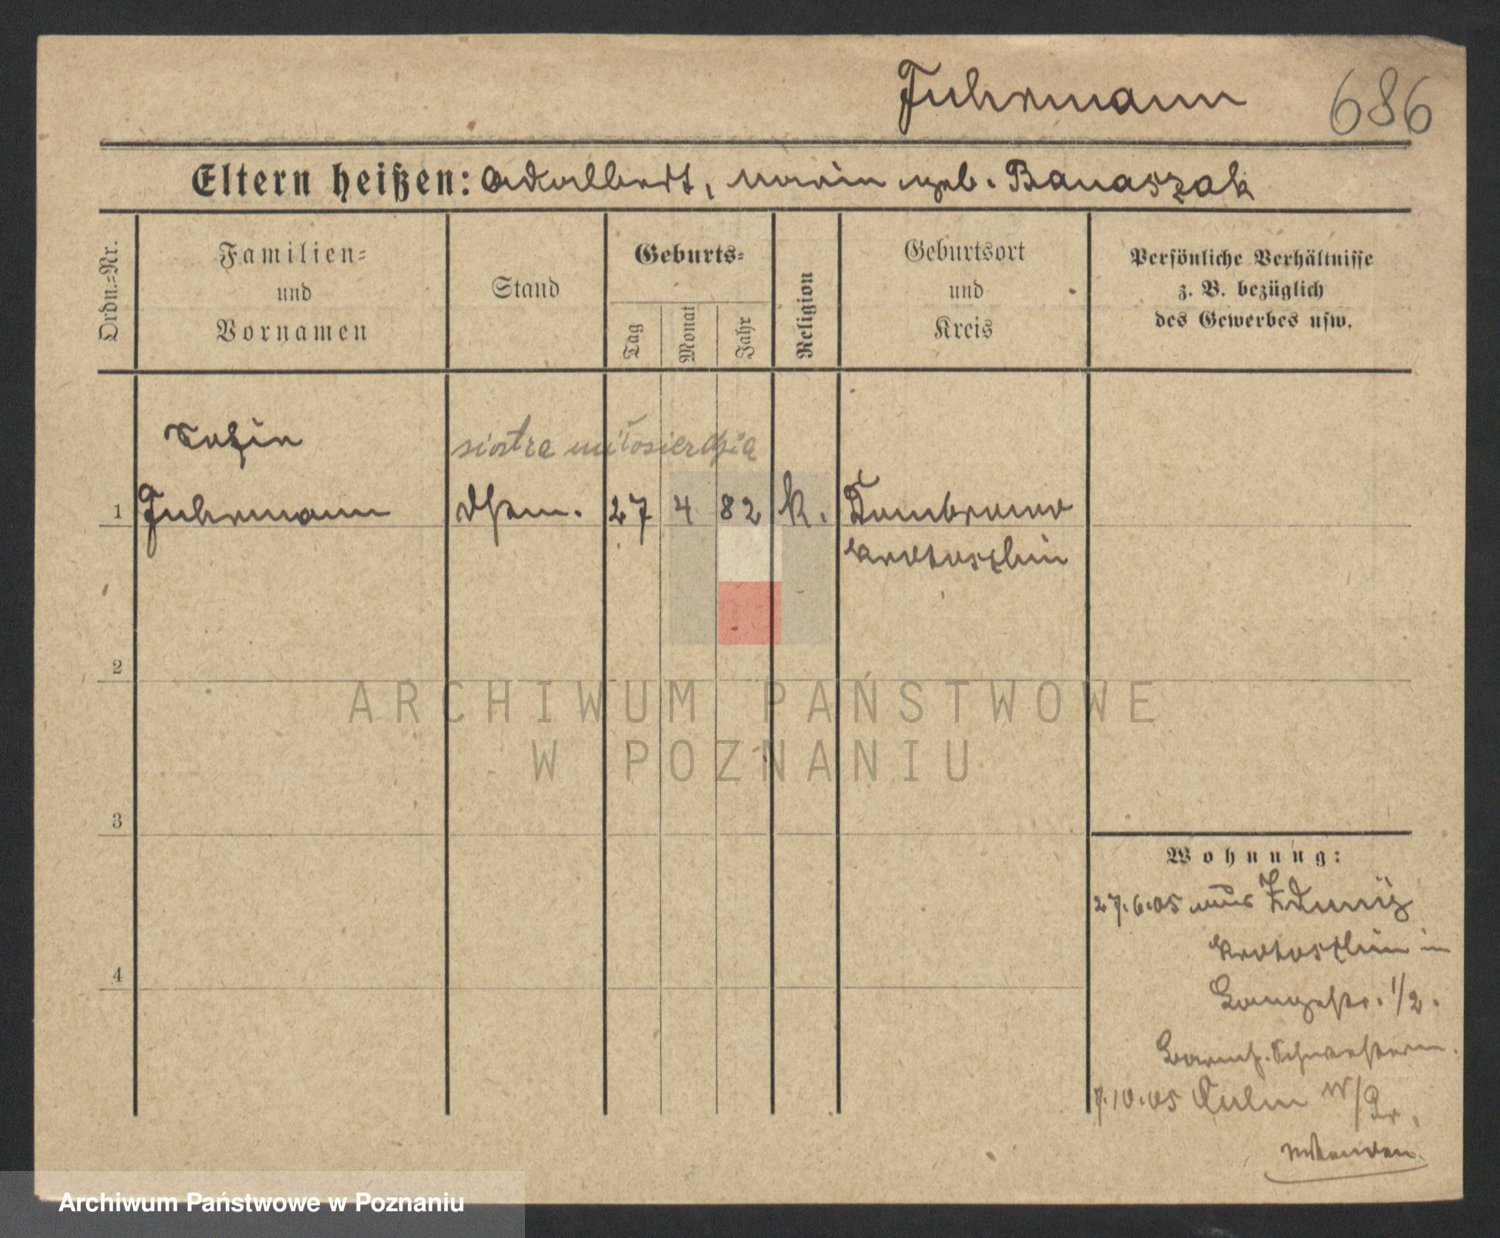 Fuhrmann 686
Eltern heißen: Adalbert, Marie geb. Banaszak
Ordn.-Nr.
Familien-
und
Vornamen
Stand
Geburts-
Tag
Monat
Jahr
Religion
Geburtsort
und
Kreis
Persönliche Verhältnisse
z. B. bezüglich
des Gewerbes usw.
Sofie
siostra miłosierdzia
1 Fuhrmann 27 4 82 k. Dombrowo
Krotoschin
2
3
4
Wohnung:
27.6.05 aus Zduny
Krotoschin in
Langestr. 1/2.
Barmh. Schwestern.
7.10.05 Culm W/Pr.
ARCHIWUM PAŃSTWOWE
W POZNANIU
Archiwum Państwowe w Poznaniu